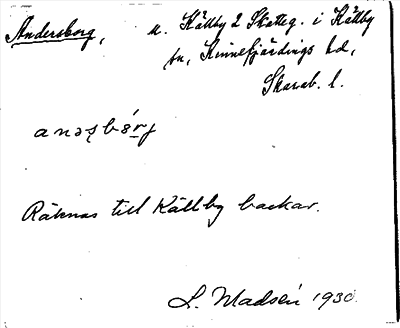 Andersborg, u. Källby 2 Skatteg. i Källby
sn, Kinnefjärdings hd,
Skarab. l.
anəşbórj
Räknas till Källby backar.
L. Madsén 1930.